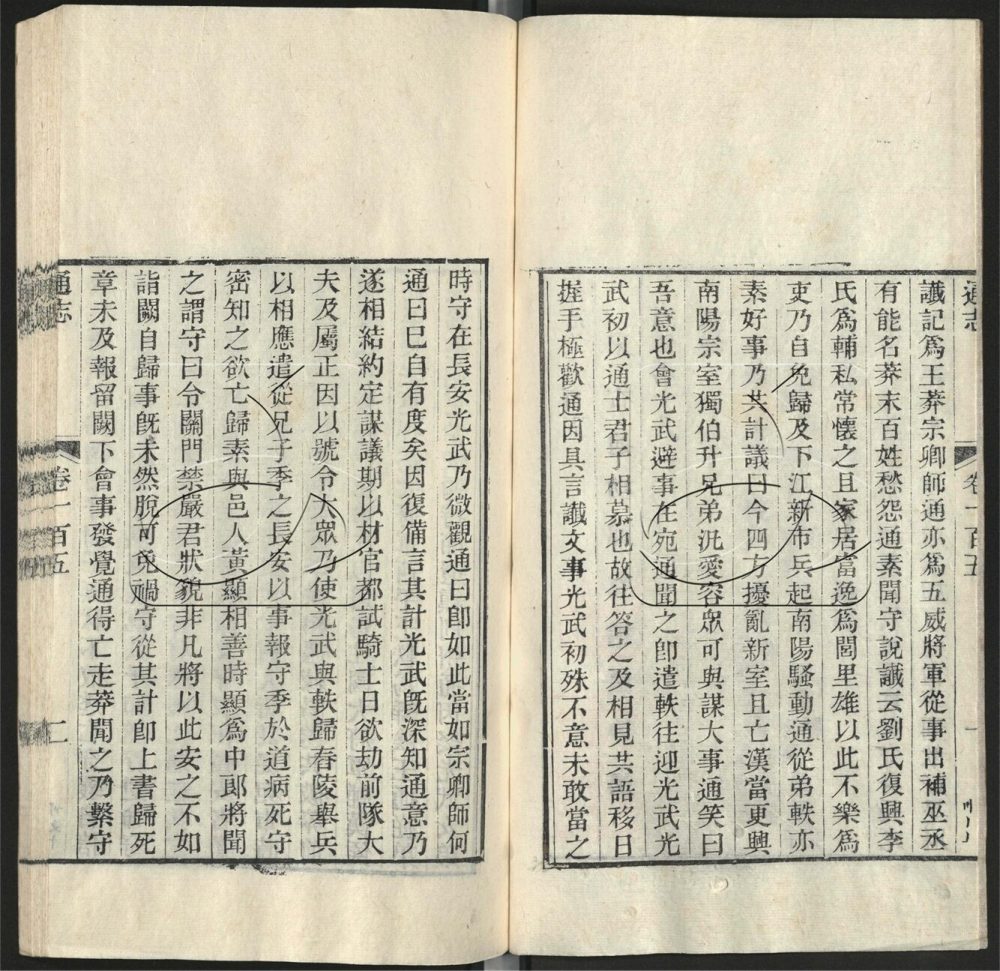 通志
卷一百五
一
讖記爲王莽宗卿師通亦爲五威將軍從事出補巫丞
有能名莽末百姓愁怨通素聞守說讖云劉氏復興李
氏爲輔私常懷之且家居富逸爲閭里雄以此不樂爲
吏乃自免歸及下江新市兵起南陽騷動通從弟軼亦
素好事乃共計議曰今四方擾亂新室且亡漢當更興
南陽宗室獨伯升兄弟汎愛容眾可與謀大事通笑曰
吾意也會光武避事在宛通聞之卽遣軼往迎光武光
武初以通士君子相慕也故往答之及相見共語移日
握手極歡通因具言讖文事光武初殊不意未敢當之
時守在長安光武乃微觀通曰卽如此當如宗卿師何
通曰巳自有度矣因復備言其計光武旣深知通意乃
遂相結約定謀議期以材官都試騎士日欲劫前隊大
夫及屬正因以號令大眾乃使光武與軼歸舂陵舉兵
以相應遣從兄子季之長安以事報守季於道病死守
密知之欲亡歸素與邑人黃顯相善時顯爲中郎將聞
之謂守曰今關門禁嚴君狀貌非凡將以此安之不如
詣闕自歸事旣未然脫可免禍守從其計卽上書歸死
章未及報留闕下會事發覺通得亡走莽聞之乃繫守
通志
卷一百五
二